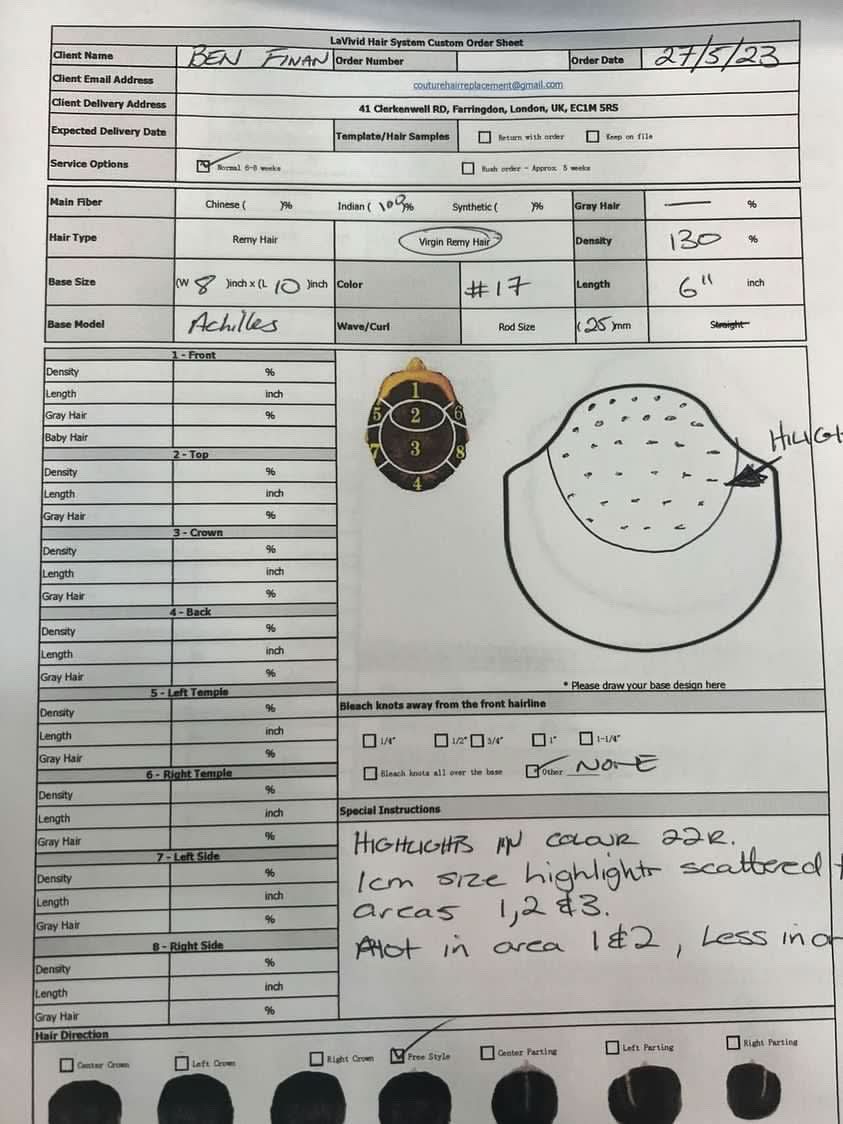 LaVivid Hair System Custom Order Sheet
Client Name BEN FINAN Order Number Order Date 27/5/23
Client Email Address couturehairreplacement@gmail.com
Client Delivery Address 41 Clerkenwell RD, Farringdon, London, UK, EC1M 5RS
Expected Delivery Date Template/Hair Samples Return with order Keep on file
Service Options Normal 6-8 weeks Rush order - Approx 5 weeks
Main Fiber Chinese ( )% Indian (100)% Synthetic ( )% Gray Hair — %
Hair Type Remy Hair Virgin Remy Hair Density 130 %
Base Size (W 8 )inch x (L 10 )inch Color #17 Length 6" inch
Base Model Achilles Wave/Curl Rod Size (25)mm Straight
1 - Front
Density %
Length inch
Gray Hair %
Baby Hair
2 - Top
Density %
Length inch
Gray Hair %
3 - Crown
Density %
Length inch
Gray Hair %
4 - Back
Density %
Length inch
Gray Hair %
5 - Left Temple
Density %
Length inch
Gray Hair %
6 - Right Temple
Density %
Length inch
Gray Hair %
7 - Left Side
Density %
Length inch
Gray Hair %
8 - Right Side
Density %
Length inch
Gray Hair %
1
5 2 6
3
7 8
4
HILIGH
* Please draw your base design here
Bleach knots away from the front hairline
1/4" 1/2" 3/4" 1" 1-1/4"
Bleach knots all over the base Other NONE
Special Instructions
HIGHLIGHTS IN COLOUR 22R.
1cm size highlights scattered
areas 1,2 & 3.
Alot in area 1&2, Less in
Hair Direction
Center Crown Left Crown Right Crown Free Style Center Parting Left Parting Right Parting